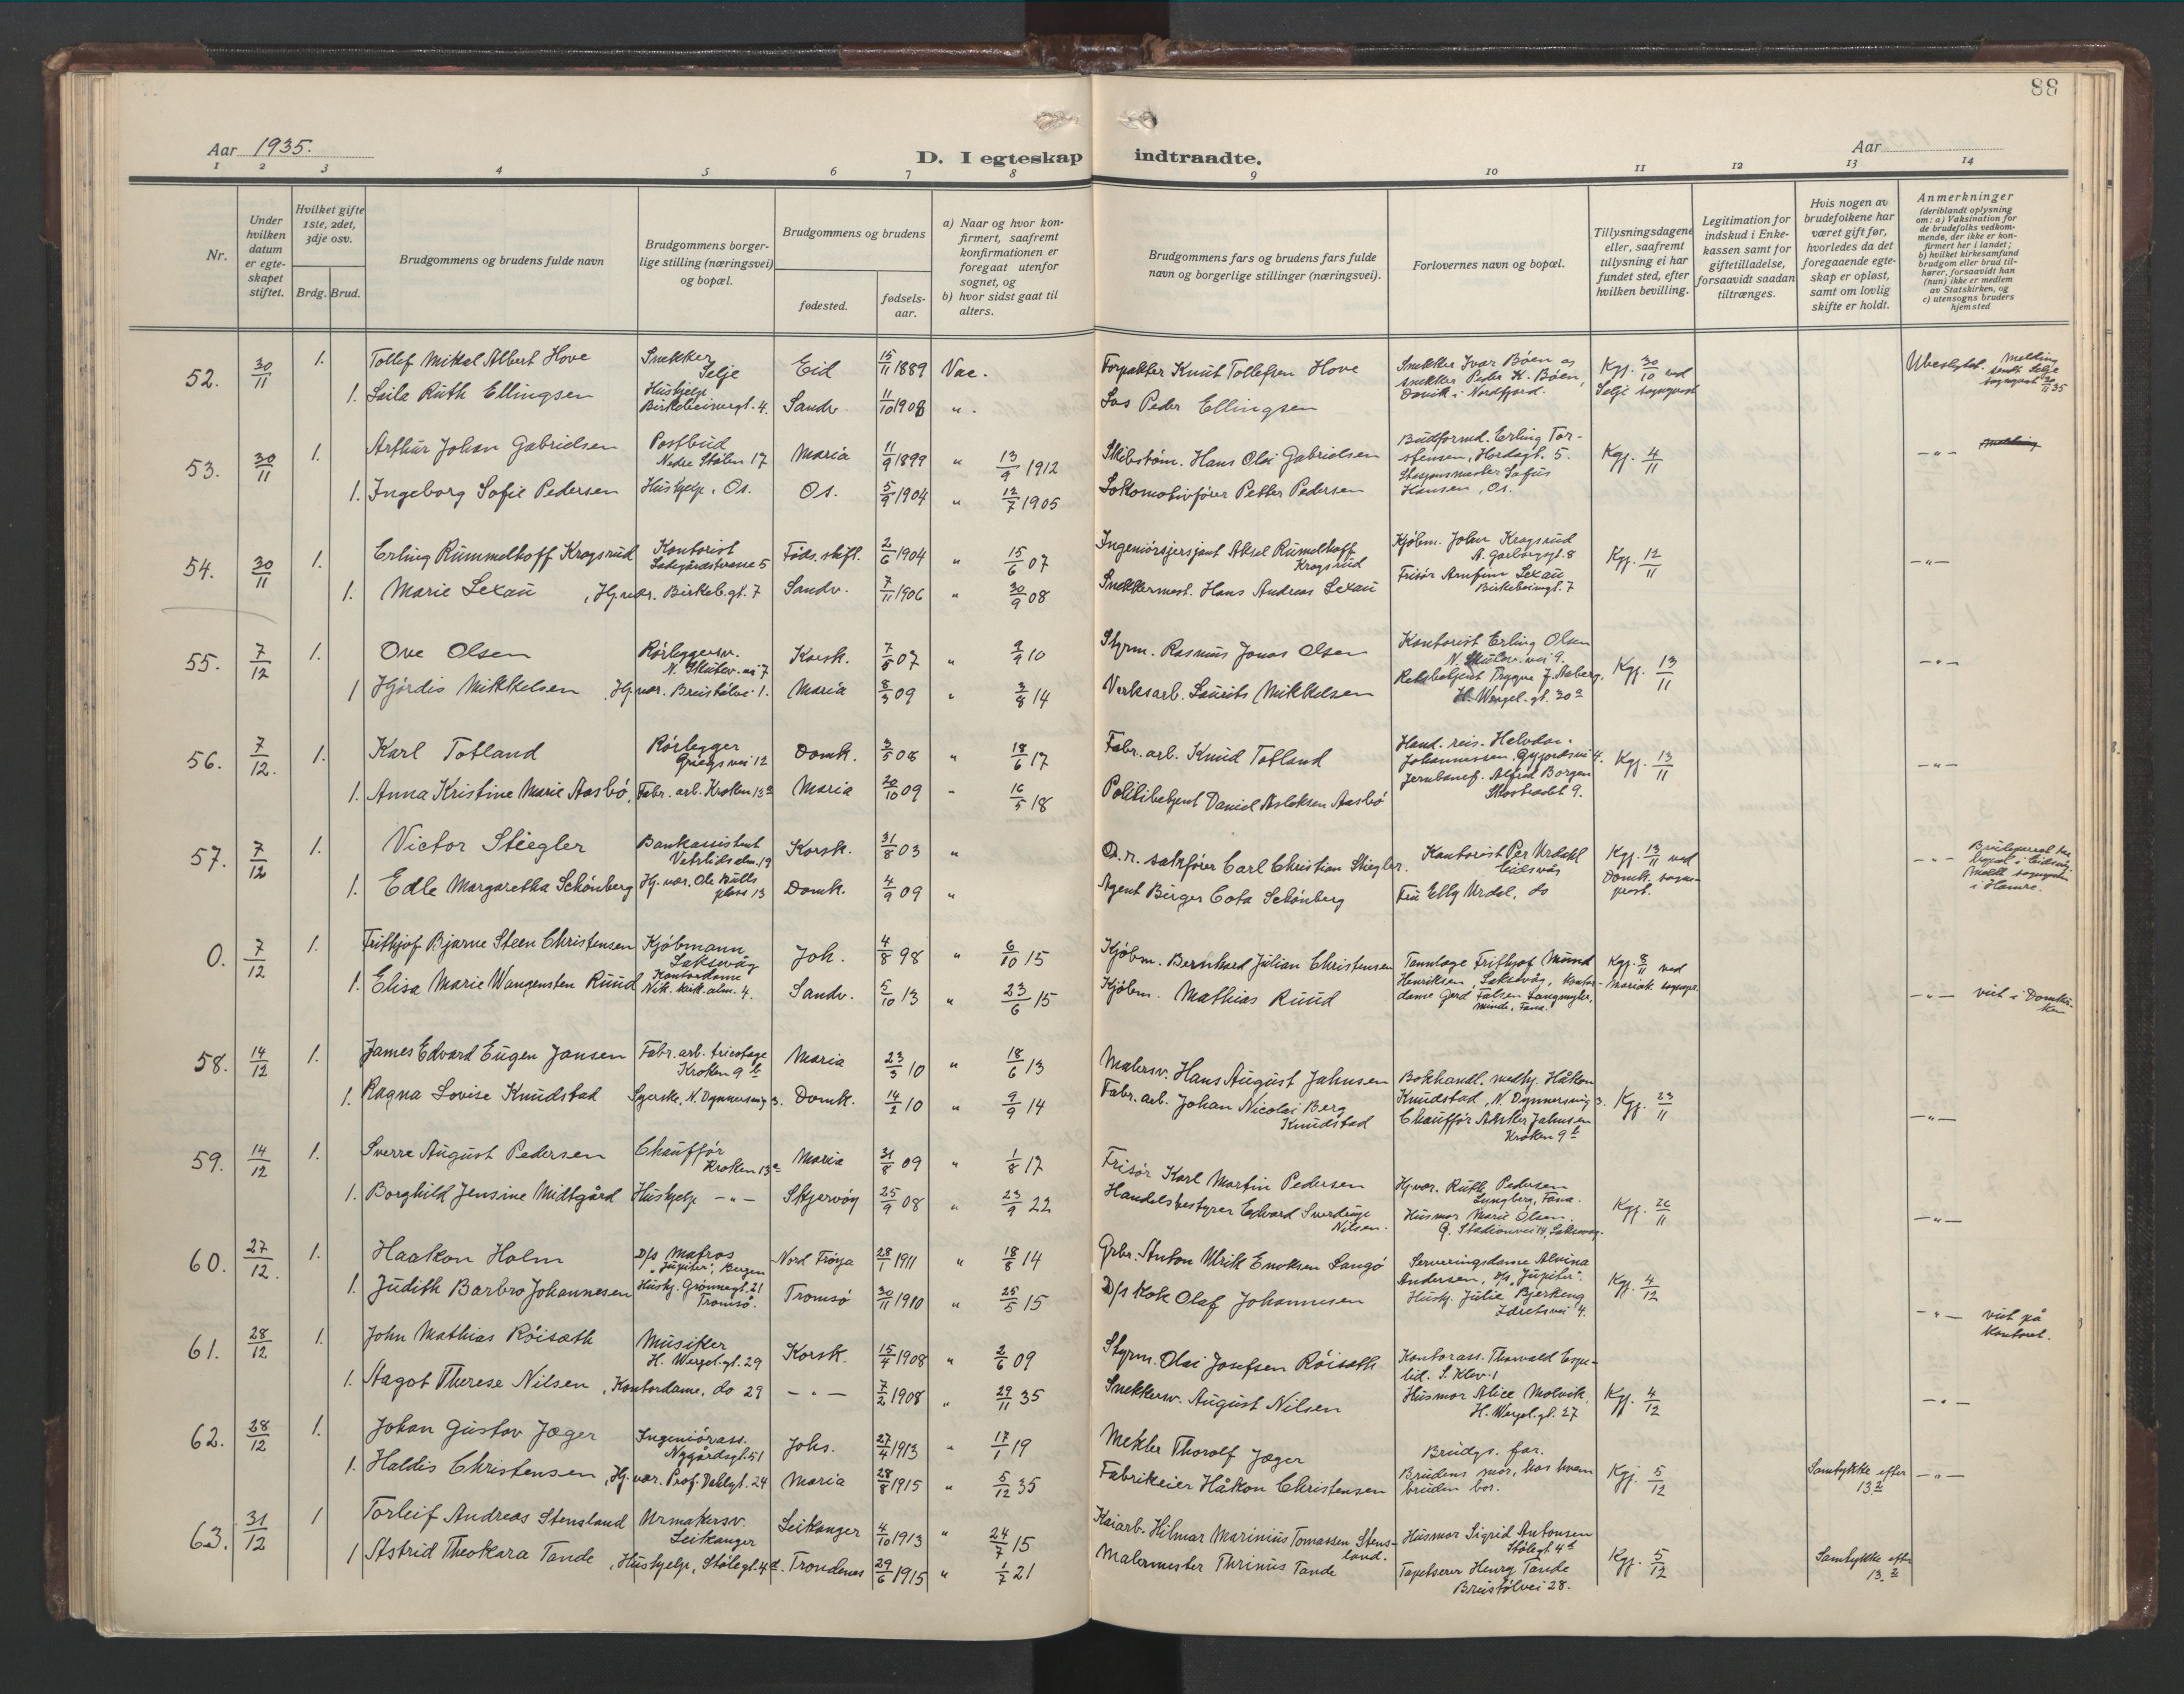 88
Aar 1935.
D. I egteskap indtraadte.
Aar
1 2 3 4 5 6 7 8 9 10 11 12 13 14
Nr.
Under hvilken datum er egteskapet stiftet.
Hvilket gifte 1ste, 2det, 3dje osv.
Brdg. Brud.
Brudgommens og brudens fulde navn
Brudgommens borgerlige stilling (næringsvei) og bopæl.
Brudgommens og brudens
fødested.
fødsels-aar.
a) Naar og hvor konfirmert, saafremt konfirmationen er foregaat utenfor sognet, og
b) hvor sidst gaat til alters.
Brudgommens fars og brudens fars fulde navn og borgerlige stillinger (næringsvei).
Forlovernes navn og bopæl.
Tillysningsdagene eller, saafremt tillysning ei har fundet sted, efter hvilken bevilling.
Legitimation for indskud i Enkekassen samt for giftetilladelse, forsaavidt saadan tiltrænges.
Hvis nogen av brudefolkene har været gift før, hvorledes da det foregaaende egteskap er opløst, samt om lovlig skifte er holdt.
Anmerkninger
(deriblandt oplysning om: a) Vaksination for de brudefolks vedkommende, der ikke er konfirmert her i landet; b) hvilket kirkesamfund brudgom eller brud tilhører, forsaavidt han (hun) ikke er medlem av Statskirken, og c) utensogns bruders hjemsted
52. 30/11 1. Tollef Mikal Albert Hove Snekker Selje Eid 15/11 1889 Vac. Forpakter Knut Tollefsen Hove Snekker Ivar Böen og snekker Peder K. Böen, Davik i Nordfjord. Kgj. 30/10 ved Selje sogneprest Ubeslektet. Melding sendt Selje
1. Laila Ruth Ellingsen Hushjelp Birkebeinergt. 4. Sandv. 11/10 1908 ". Los Peder Ellingsen
53. 30/11 1. Arthur Johan Gabrielsen Postbud Nedre Stölen 17 Maria 11/9 1899 " 13/9 1912 Skibstöm. Hans Olai Gabrielsen Budformd. Erling Torstensen, Hordagt. 5. Kgj. 4/11 -"-
1. Ingeborg Sofie Pedersen Hushjelp, Os. Os. 5/9 1904 " 12/7 1905 Lokomotivförer Petter Pedersen Stasjonsmester Sofus Hansen, Os.
54. 30/11 1. Erling Rummelhoff Krogsrud Kontorist Ladegårdstrasse 5 Föds.stift. 2/6 1904 " 15/6 07 Ingeniörsjersjant Aksel Rumelhoff Krogsrud Kjöbm. John Krogsrud A. Garborgsgt. 8 Kgj. 12/11 -"-
1. Marie Lexau, Hj.vær. Birkeb.gt. 7 Sandv. 7/11 1906 " 30/9 08 Snekkermest. Hans Andreas Lexau Frisör Arnfinn Lexau Birkebeinergt. 7
55. 7/12 1. Ove Olsen Rörleggersv. N. Skulev. vei 7 Korsk. 7/8 07 " 9/9 10 Styrm. Rasmus Jonas Olsen Kontorist Erling Olsen N. Skulev. vei 9. Kgj. 13/11 -"-
1 Hjördis Mikkelsen, Hj.vær. Breistölsvei 1. Maria 8/3 09 " 3/8 14 Verksarb. Laurits Mikkelsen Trygve J. Aaberg, H. Wergel. gt. 30a
56. 7/12. 1. Karl Totland Rörlegger Griegs vei 12 Domk. 3/5 08 " 18/6 17 Fabr. arb. Knud Totland Hand. reis. Halvdan Johannessen, 4. Kgj. 13/11 -"-
1. Anna Kristine Marie Aasbö, Fabr. arb. Kroken 13a Maria 20/10 09 " 16/5 18 Politibetjent Daniel Aslaksen Aasbö Alfred Borgen Skostredet 9.
57. 7/12 1. Victor Stiegler Bankassistent Vetrlidsalm. 19 Korsk. 31/8 03 " O.r. sakförer Carl Christian Stiegler. Kontorist Per Urdahl Eidsvåg Kgj. 13/11 ved Domk. sogneprest. -"-
1. Edle Margaretha Schönberg Hj. vær. Ole Bulls plass 13 Domk. 4/9 09 " Agent Birger Cota Schönberg Fru Elly Urdal, do
0. 7/12 1. Frithjof Bjarne Steen Christensen Kjöbmann Laksevåg Joh. 4/8 98 " 6/10 15 Kjöbm. Bernhard Julian Christensen Tannlæge Frithjof Mund Henriksen, Laksevåg, Kgj. 8/11 ved Mariak. sognepr.
1. Elisa Marie Wangensten Ruud Kontordame Nik. kirk. alm. 4. Sandv. 5/10 13 " 23/6 15 Kjöbm. Mathias Ruud kontordame Gerd Falsen Langmyhr, minde, Fana. -"- viet i Domkirken
58. 14/12 1. James Edvard Eugen Jansen Fabr. arb. tricotage Kroken 9b Maria 23/3 10 " 18/6 13 Malersv. Hans August Jahnsen Bokhandl. medhj. Håkon Knudstad, N. Dynnersvig 3. Kgj. 23/11
1. Ragna Lovise Knudstad Syerske, N. Dynnersvig 3. Domk. 14/2 10 " 9/9 14 Fabr. arb. Johan Nicolai Berg Knudstad Chaufför Asker Jahnsen Kroken 9b -"-
59. 14/12 1. Sverre August Pedersen Chaufför Kroken 13a Maria 31/8 09 " 1/8 17 Frisör Karl Martin Pedersen Hj.vær. Ruth Pedersen Lyngberg, Fana.
1. Borghild Jensine Midtgård Hushjelp -"- Skjervöy 25/9 08 " 23/9 22 Handelsbestyrer Edvard Sverdrup Nilsen. Husmor Marie Olsen G. Stadionvei 14, Laksevåg. Kgj. 26/11 -"-
60. 27/12. 1. Haakon Holm D/s Matros "Jupiter", Bergen Nord Fröya 28/1 1911 " 18/8 14 Grbr. Anton Ulrik Enoksen Langö Serveringsdame Alvina Andersen, D/s "Jupiter". Kgj. 4/12
1. Judith Barbro Johannesen Hushj. Grönnegt. 21 Tromsö. Tromsö 30/11 1910 " 25/5 15 D/s Kok Olaf Johannesen Hushj. Julie Bjerkeng Idretsvei 4. -"- viet på kontoret.
61. 28/12 1. John Mathias Röisæth Musiker H. Wergel. gt. 29 Korsk. 15/4 1908 " 2/6 09 Styrm. Olai Josefsen Röisæth Kontorass. Thorvald Espelid. S. Klev. 1
1. Aagot Therese Nilsen, Kontordame, do 29 -"- 7/2 1908 " 29/11 35 Snekkersv. August Nilsen Husmor Alice Molvik H. Wergel. gt. 27 Kgj. 4/12 -"-
62. 28/12 1. Johan Gustav Jæger Ingeniörass. Nygårdsgt. 51 Johs. 27/4 1913 " 17/1 19 Mekler Thorolf Jæger Brudgs. far.
1. Haldis Christensen, Hj.vær. Prof. Dahlsgt. 24 Maria 28/8 1915 " 5/12 35 Fabrikeier Håkon Christensen Brudens mor, hos hvem bruden bor. Kgj. 5/12 Samtykke efter 13.2 -"-
63. 31/12 1 Torleif Andreas Stensland Urmakersv. Leikanger Leikanger 4/10 1913 " 24/7 15 Kaiarb. Hilmar Marinius Tomassen Stensland. Husmor Sigrid Antonsen Stölegt. 4b
1 Astrid Theokara Tande, Hushjelp, Stölegt. 4d. Trondenes 29/6 1915 " 1/7 21 Malermester Thrinus Tande Tapetserer Henry Tande Breistölvei 28. Kgj. 5/12 Samtykke efter 13.2